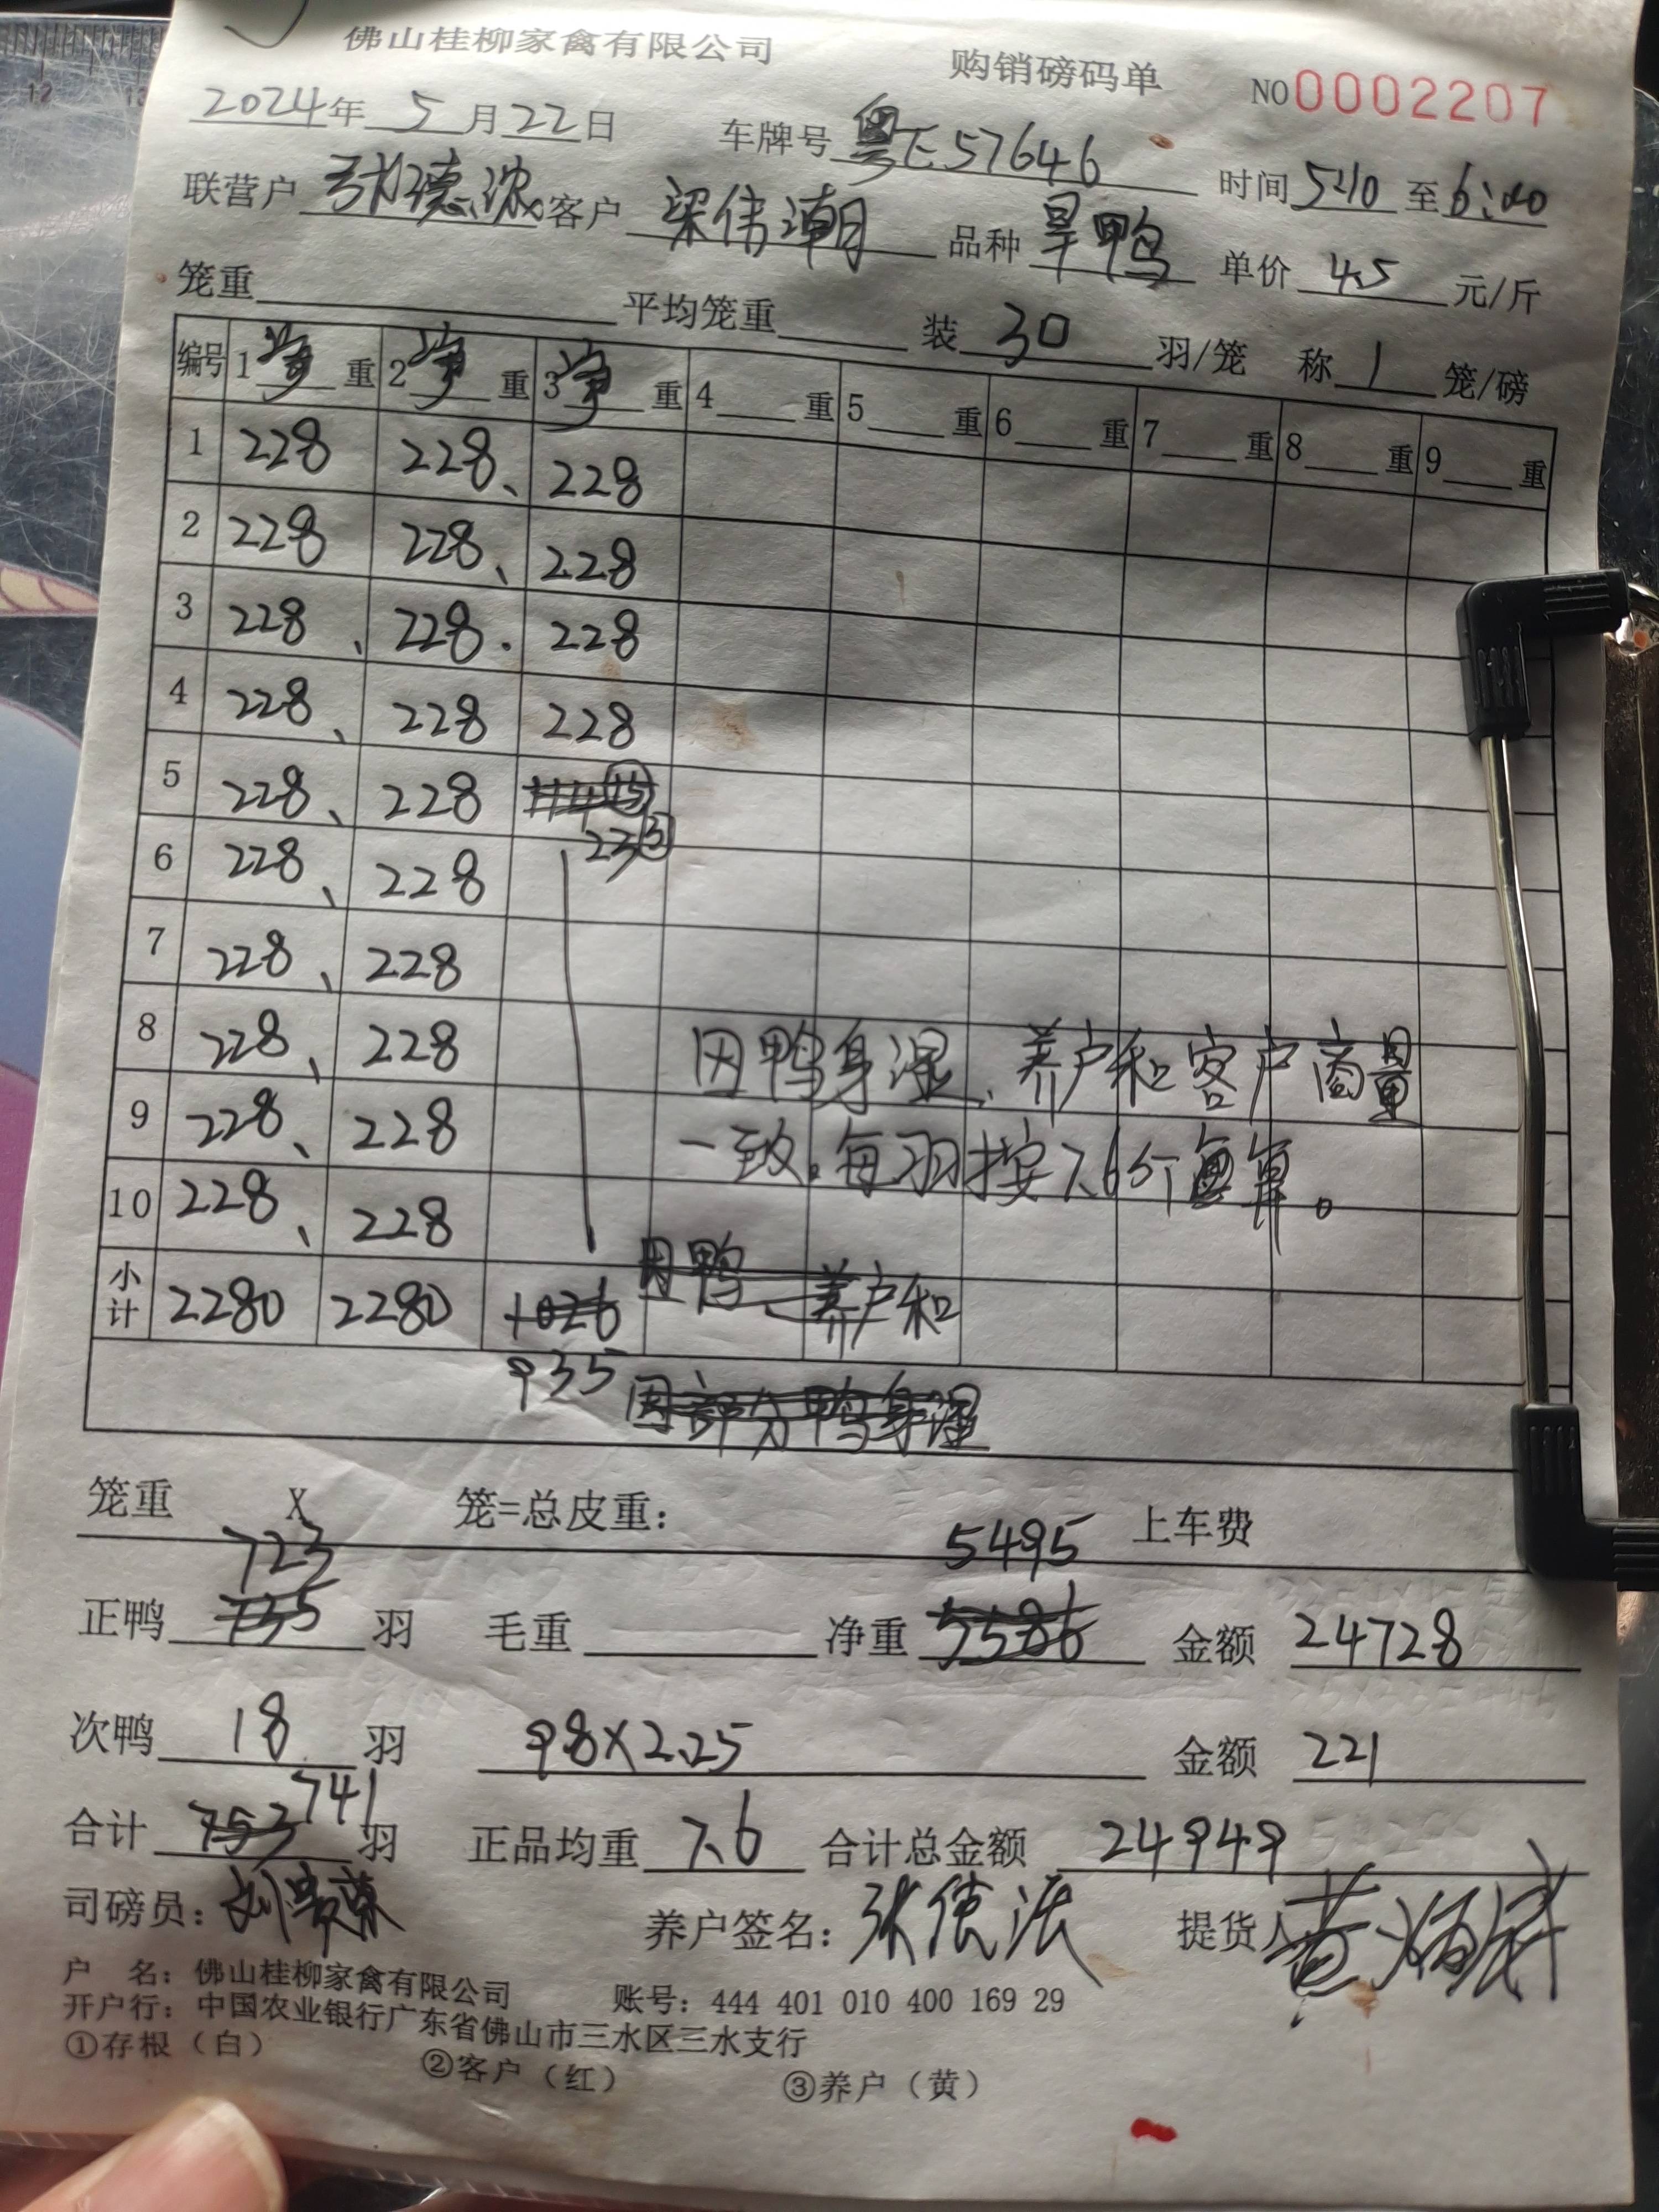 佛山桂柳家禽有限公司 购销磅码单 NO 0002207
2024年 5月22日 车牌号 粤E57646 时间 5:10 至 6:40
联营户 张德浓 客户 梁伟潮 品种 旱鸭 单价 4.5 元/斤
笼重 平均笼重 装 30 羽/笼 称 1 笼/磅
编号 1 净 重 2 净 重 3 净 重 4 重 5 重 6 重 7 重 8 重 9 重
1 228 228、 228
2 228 228、 228
3 228、 228. 228
4 228、 228 228
5 228、 228
23③
6 228、 228
7 228、 228
8 228、 228
因鸭身湿、养户和客户商量
9 228、 228
一致。每羽按7.6斤算。
10 228、 228
因鸭、养户和
小计 2280 2280 1026
935 因部分鸭身湿
笼重 X 笼=总皮重: 上车费
723 5495
正鸭 735 羽 毛重 净重 5586 金额 24728
次鸭 18 羽 98X2.25 金额 221
合计 753 741 羽 正品均重 7.6 合计总金额 24949
司磅员: 养户签名: 提货人
户 名: 佛山桂柳家禽有限公司 账号: 444 401 010 400 169 29
开户行: 中国农业银行广东省佛山市三水区三水支行
①存根(白) ②客户(红) ③养户(黄)
12